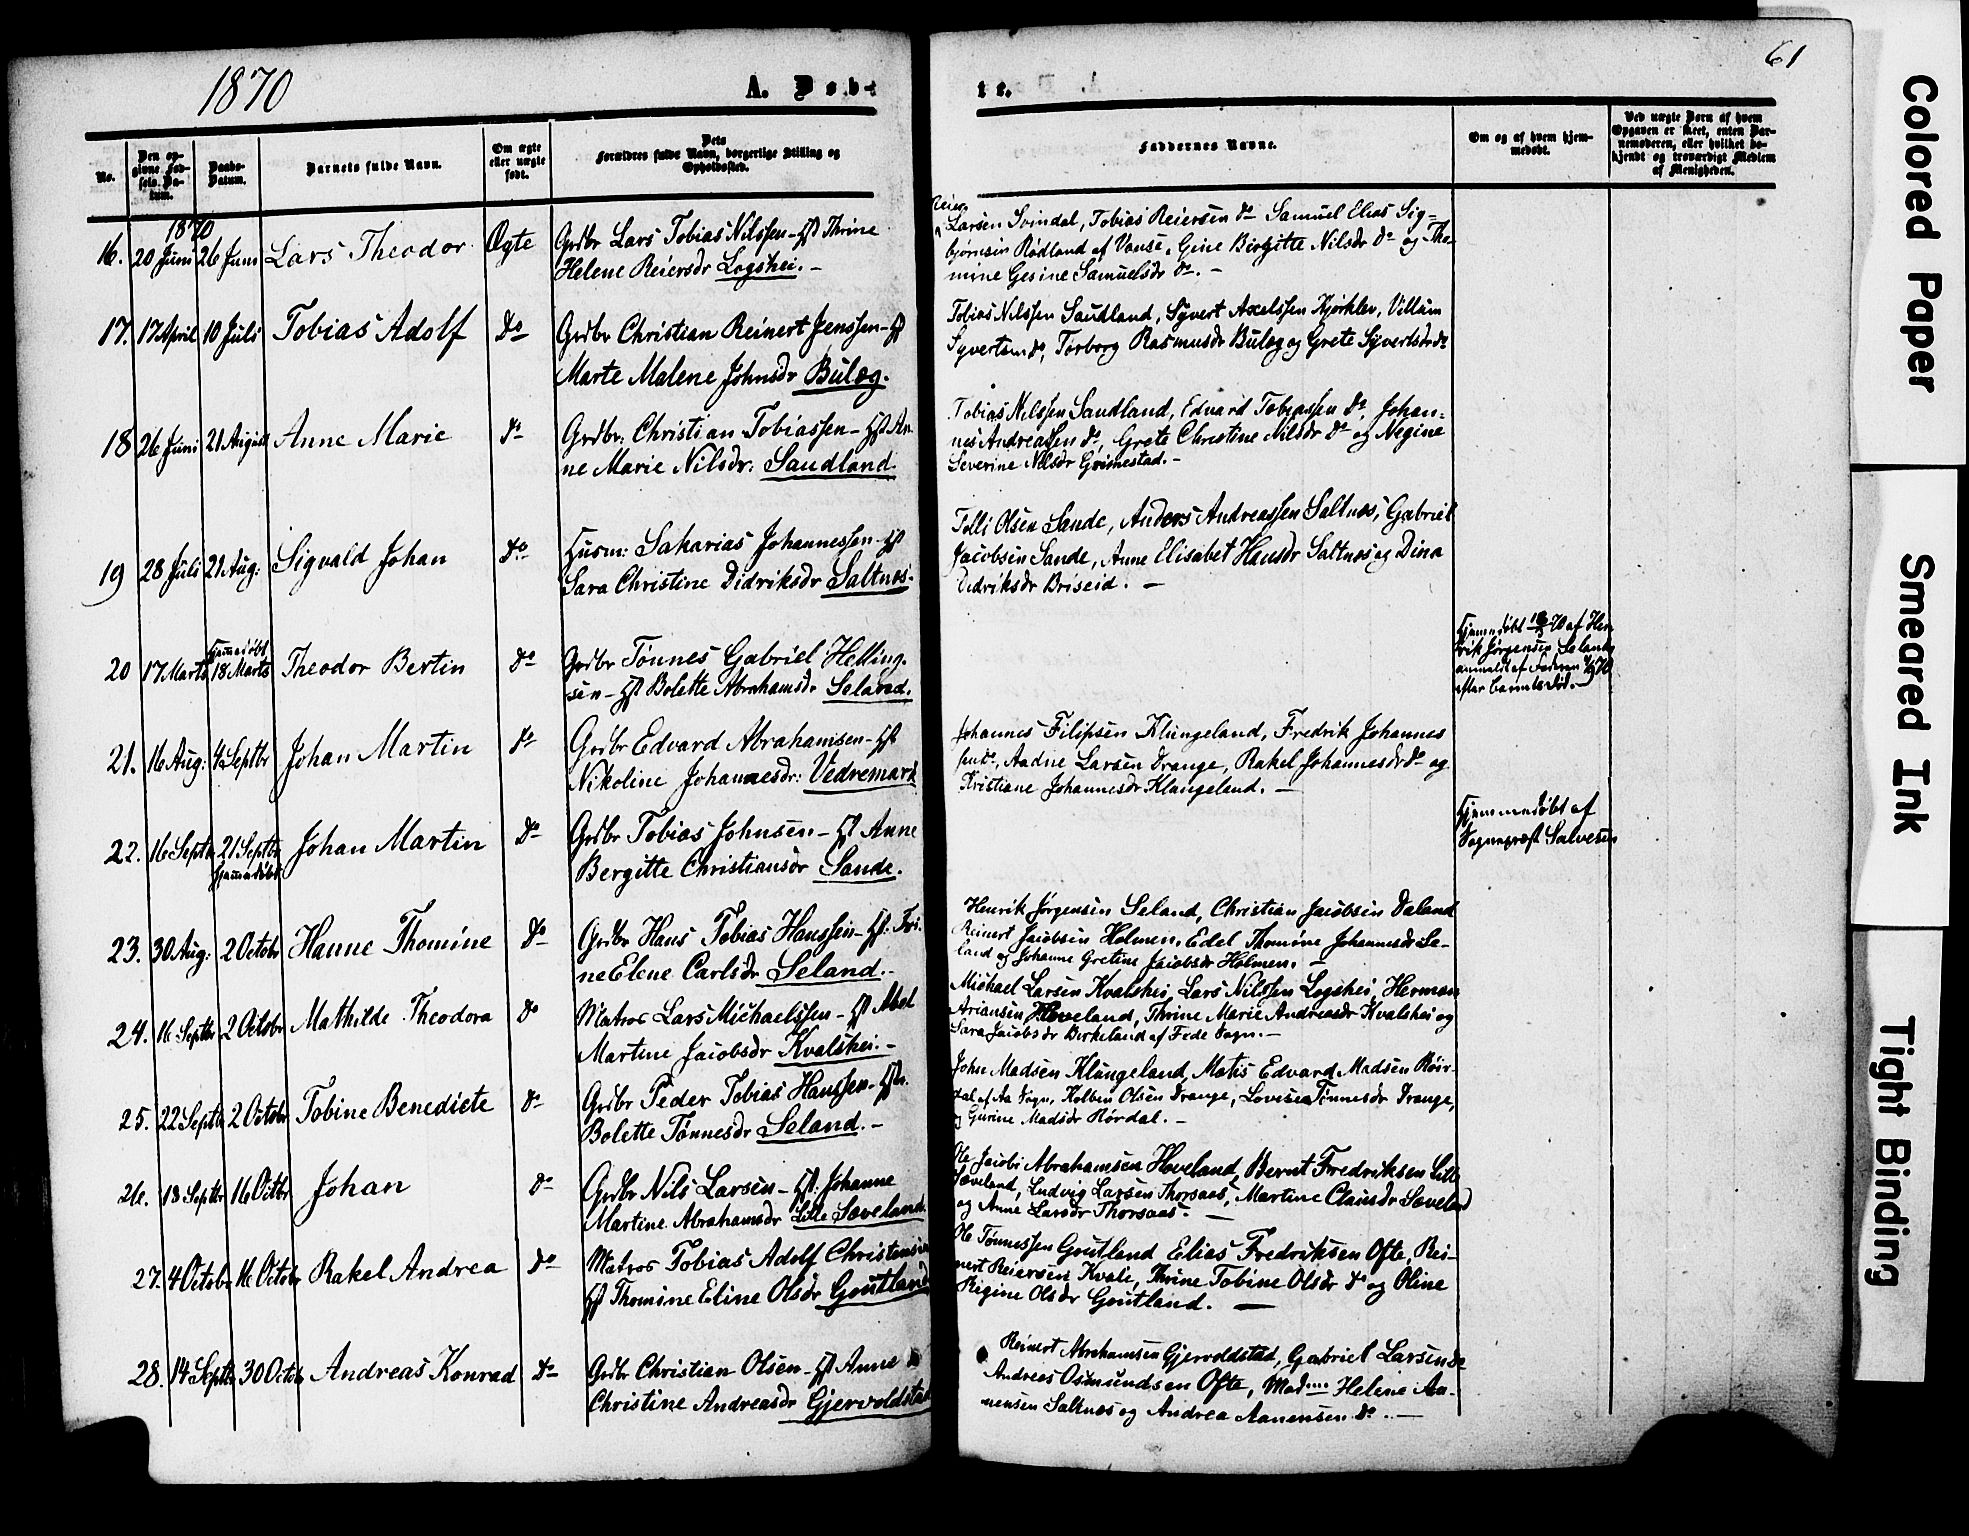 1870
A. Døb-
te.
61
No.
Den op-
givne Fød-
sels Da-
tum.
Daabs-
Datum.
Barnets fulde Navn.
Om ægte
eller uægte
født.
Dets
Forældres fulde Navn, borgerlige Stilling og
Opholdssted.
Faddernes Navne.
Om og af hvem hjem-
medøbt.
Ved uægte Børn af hvem
Opgaven er skeet, enten Bar-
nemoderen, eller hvilket be-
kjendt og troværdigt Medlem
af Menigheden.
1870
16. 20 Juni 26 Juni Lars Theodor Ægte Grdbr Lars Tobias Nilssen - Hst Thrine
Helene Reiersdr Logshei. -
Reier
Larsen Svindal, Tobias Reiersen do Samuel Elias Sig=
bjørnsen Rødland af Vanse, Gine Birgitte Nilsdr do og Tho-
mine Gesine Samuelsdr do. -
17. 17 April 10 Juli Tobias Adolf do Grdbr Christian Reinert Jenssen - Hst
Marte Malene Johnsdr Bulæg.
Tobias Nilssen Saudland, Syvert Axelssen Kjørklev, Villum
Syvertsen do, Torborg Rasmusdr Bulæg og Grete Syvertsdr do
18 26 Juni 21 August Anne Marie do Grdbr: Christian Tobiassen - Hst An
ne Marie Nilsdr: Saudland.
Tobias Nilssen Saudland, Edvard Tobiassen do, Johan=
nes Andreassen do, Grete Christine Nilsdr do og Regine
Severine Nilsdr Grimestad. -
19 28 Juli 21 Aug: Sigvald Johan do Husm: Sakarias Johannessen - Hst
Sara Christine Didriksdr Saltnes.
Telli Olsen Sande, Anders Andreassen Saltnes, Gabriel
Jacobsen Sande, Anne Elisabet Hansdr Saltnes og Dina
Didriksdr Briseid. -
20 17 Marts Hjemmedøbt 18 Marts Theodor Bertin do Grdbr Tønnes Gabriel Helling-
sen - Hst Bolette Abrahamsdr Seland.
Hjemmedøbt 18/3 70 af Hen
rik Jørgensen Seland,
anmeldt af Faderen
efter Barnets Død. -
21. 16 Aug: 4 Septbr Johan Martin do Grdbr Edvard Abrahamsen - Hst
Nikoline Johannesdr: Vedremark
Johannes Filipsen Klungeland, Fredrik Johannes
sen do, Aadne Larsen Drange, Rakel Johannesdr do og
Kristiane Johannesdr Klungeland. -
22. 16 Septbr 21 Septbr Hjemmedøbt Johan Martin do Grdbr Tobias Johnsen - Hst Anne
Bergitte Christiansdr Sande.
Hjemmedøbt af
Sognepræst Salvesen
23. 30 Aug: 2 Octobr Hanne Thomine do Grdbr Hans Tobias Hanssen - Hst: Tri-
ne Elene Carlsdr Seland. -
Henrik Jørgensen Seland, Christian Jacobsen Daland
Reinert Jacobsen Holmen, Edel Thomine Johannesdr Se-
land og Johanne Gretine Jacobsdr Holmen. -
24. 16 Septbr 2 Octobr Mathilde Theodora do Matros Lars Michaelssen - Hst Abel
Martine Jacobsdr Kvalshei. -
Michael Larsen Kvalshei, Lars Nilssen Logshei, Herman
Ariansen Hoveland, Thrine Marie Andreasdr Kvalshei og
Sara Jacobsdr Birkeland af Fede Sogn. -
25. 22 Septbr 2 Octobr Tobine Benedicte do Grdbr Peder Tobias Hanssen - Hst
Bolette Tønnesdr Seland. -
John Madsen Klungeland, Matis Edvard Madsen Røir-
dal af Aa Sogn, Kolben Olsen Drange, Lovise Tønnesdr Drange,
og Gurine Madsdr Rørdal. -
26. 13 Septbr 16 Octbr Johan do Grdbr Nils Larsen - Hst. Johanne
Martine Abrahamsdr Lille Sæveland.
Ole Jacobi Abrahamsen Hoveland, Bernt Fredriksen Lille
Sæveland, Ludvig Larsen Thorsaas, Martine Clausdr Sæveland
og Anne Larsdr Thorsaas. -
27. 4 Octobr 16 Octobr Rakel Andrea do Matros Tobias Adolf Christensen
Hst Thomine Eline Olsdr Goutland
Ole Tønnessen Goutland Elias Fredriksen Ofte, Rei-
nert Reiersen Kvale, Thrine Tobine Olsdr do og Oline
Regine Olsdr Goutland. -
28. 14 Septbr 30 Octobr Andreas Konrad do Grdbr Christian Olsen - Hst Anne
Christine Andreasdr Gjervoldstad
Reinert Abrahamsen Gjervoldstad, Gabriel Larsen do
Andreas Osmundsen Ofte, Mad.... Helene Aa-
nensen Saltnes og Andrea Aanensen do. -
Colored Paper
Smeared Ink
Tight Binding